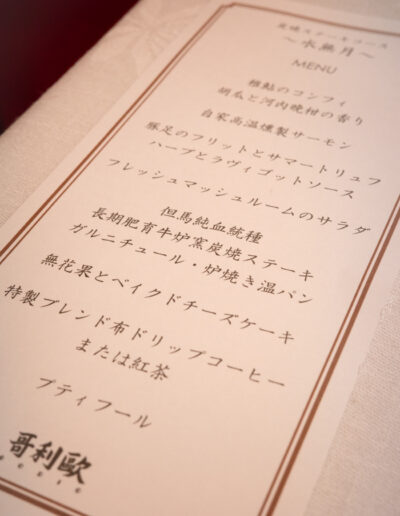 炭焼ステーキコース
～水無月～
MENU
稚鮎のコンフィ
胡瓜と河内晩柑の香り
自家高温燻製サーモン
豚足のフリットとサマートリュフ
ハーブとラヴィゴットソース
フレッシュマッシュルームのサラダ
但馬純血統種
長期肥育牛炉窯炭焼ステーキ
ガルニチュール・炉焼き温パン
無花果とベイクドチーズケーキ
特製ブレンド布ドリップコーヒー
または紅茶
プティフール
哥利歐